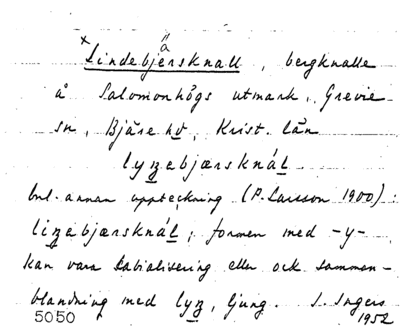 ä
× Lindebjersknall, bergknalle
å Salomonhögs utmark, Grevie
sn, Bjäre hd, Krist. län
lyṉebjærsknál
enl. annan uppteckning (P. Larsson 1900):
liṉebjærsknál; formen med -y-
kan vara labialisering eller ock samman-
blandning med lyṉ, ljung. I. Ingers
5050 1952